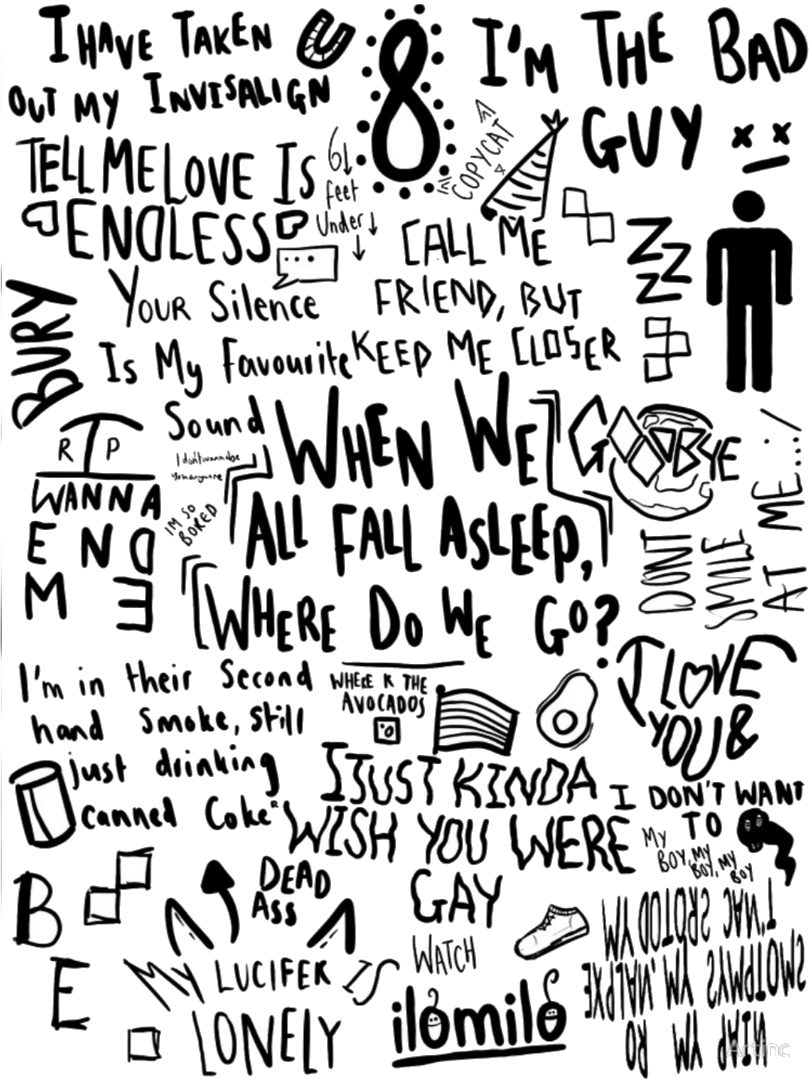 I HAVE TAKEN
OUT MY INVISALIGN
8
I'M THE BAD
GUY
TELL ME LOVE IS
ENDLESS
6
feet
under
COPYCAT
CALL ME
FRIEND, BUT
KEEP ME CLOSER
ZZZ
BURY
Your Silence
Is My Favourite
Sound
I don't wanna be
you anymore
R P
WANNA
END
ME
I'M SO
BORED
WHEN WE
ALL FALL ASLEEP,
WHERE DO WE GO?
GOODBYE
DONT
SMILE
AT ME...:/
I'm in their Second
hand Smoke, still
just drinking
canned Coke
WHERE R THE
AVOCADOS
I LOVE
YOU &
I JUST KINDA
WISH YOU WERE
GAY
I DON'T WANT
TO
MY
BOY, MY
BOY, MY
BOY
B
E
DEAD
ASS
MY LUCIFER IS
LONELY
WATCH
ilomilo
MY DOTORS CAN'T
EXPLAIN, MY SYMPTOMS
OR MY PAIN